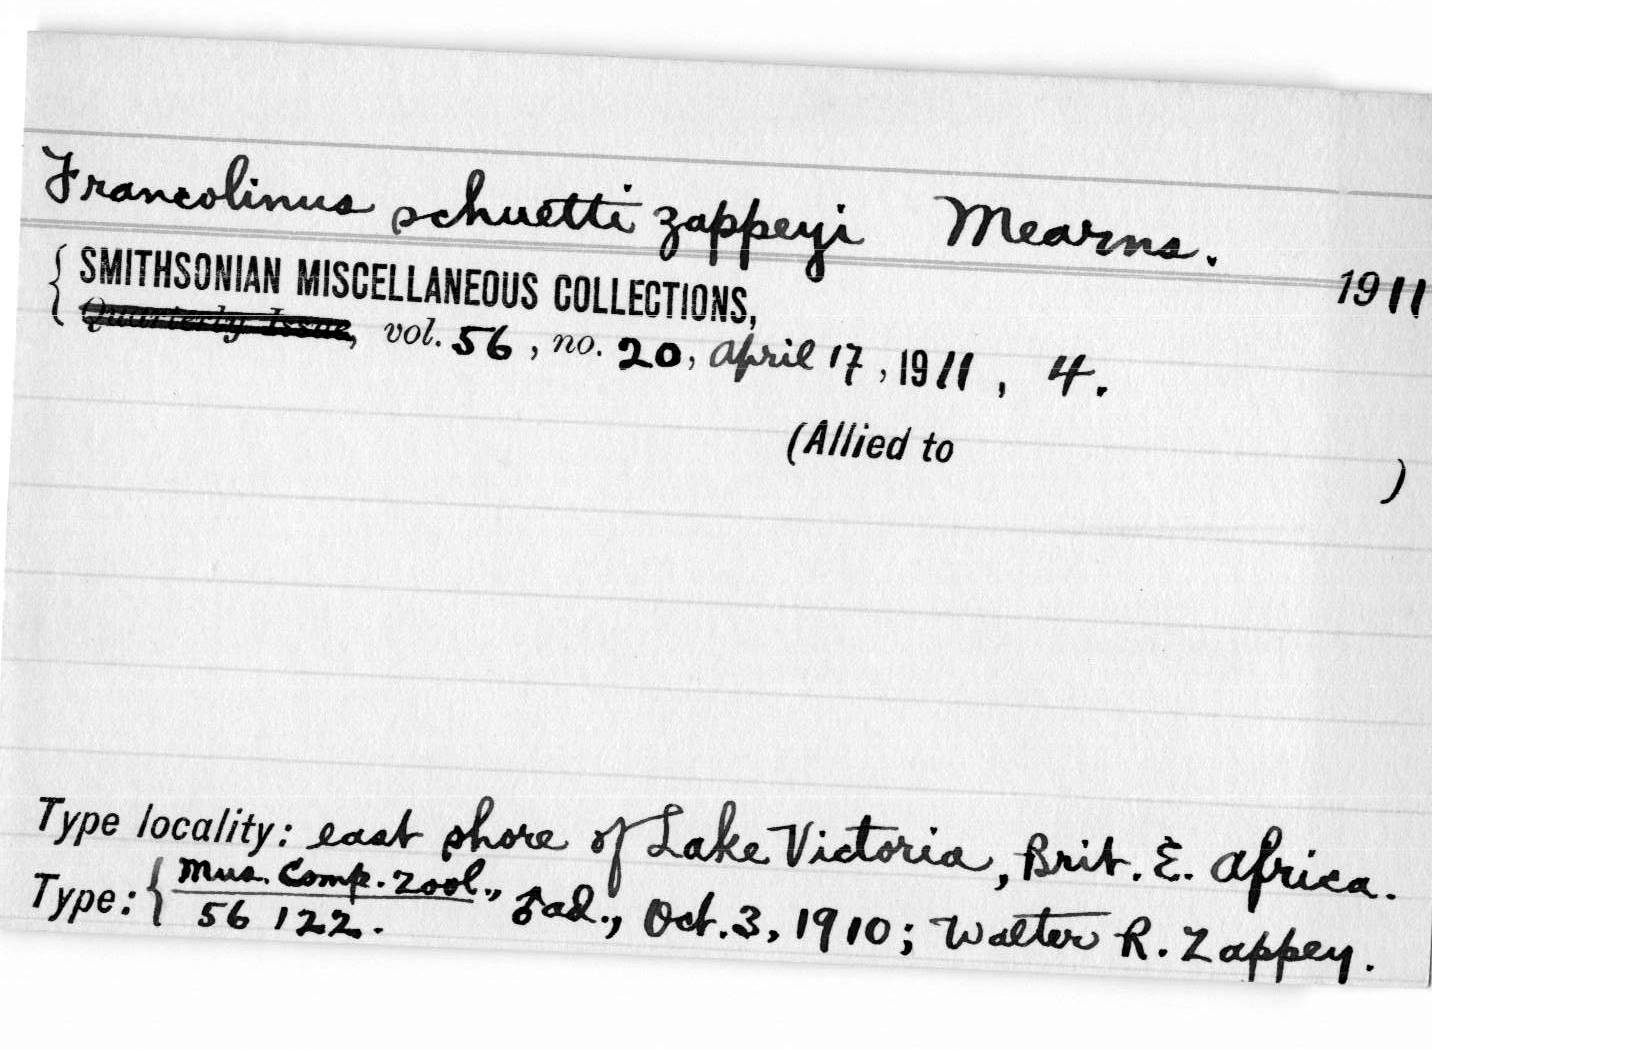 Francolinus schuetti zappeyi Mearns.
1911
{ SMITHSONIAN MISCELLANEOUS COLLECTIONS,
Quarterly Issue, vol. 56, no. 20, April 17, 1911, 4.
(Allied to )
Type locality: east shore of Lake Victoria, Brit. E. Africa.
Type: { Mus. Comp. Zool., ♂ ad., Oct. 3, 1910; Walter R. Zappey.
56 122.